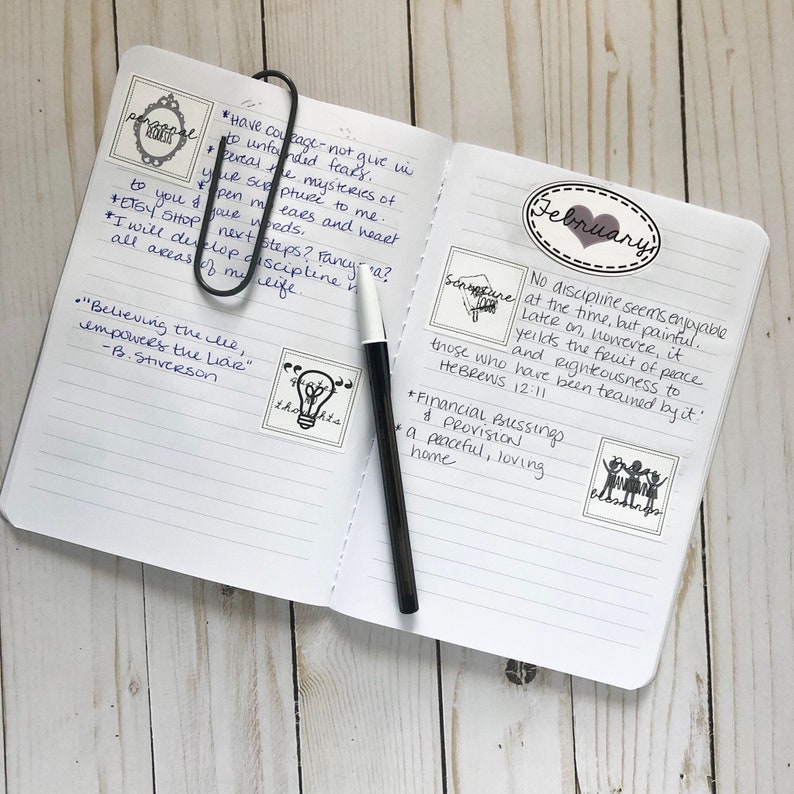 personal
REQUESTS
*Have courage - not give in
to unfounded fears.
*Reveal the mysteries of
your scripture to me.
*Open my ears and heart
to you & your words.
*ETSY SHOP next steps? Fancy
*I will develop discipline in
all areas of my life.
• "Believing the lie,
empowers the Liar"
- B. Stiverson
quotes
thoughts
February
Scripture
No discipline seems enjoyable
at the time, but painful.
Later on, however, it
yeilds the fruit of peace
and righteousness to
those who have been trained by it.
HEBREWS 12:11
*Financial Blessings
& PROVISION
* a peaceful, loving
home
Praise
THANKSGIVING
blessings